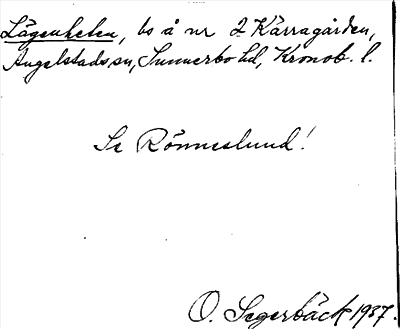 Lägenheten, bs å nr 2 Kärragården,
Angelstads sn, Sunnerbo hd, Kronob. l.
Se Rönneslund!
O. Segerbäck 1937.